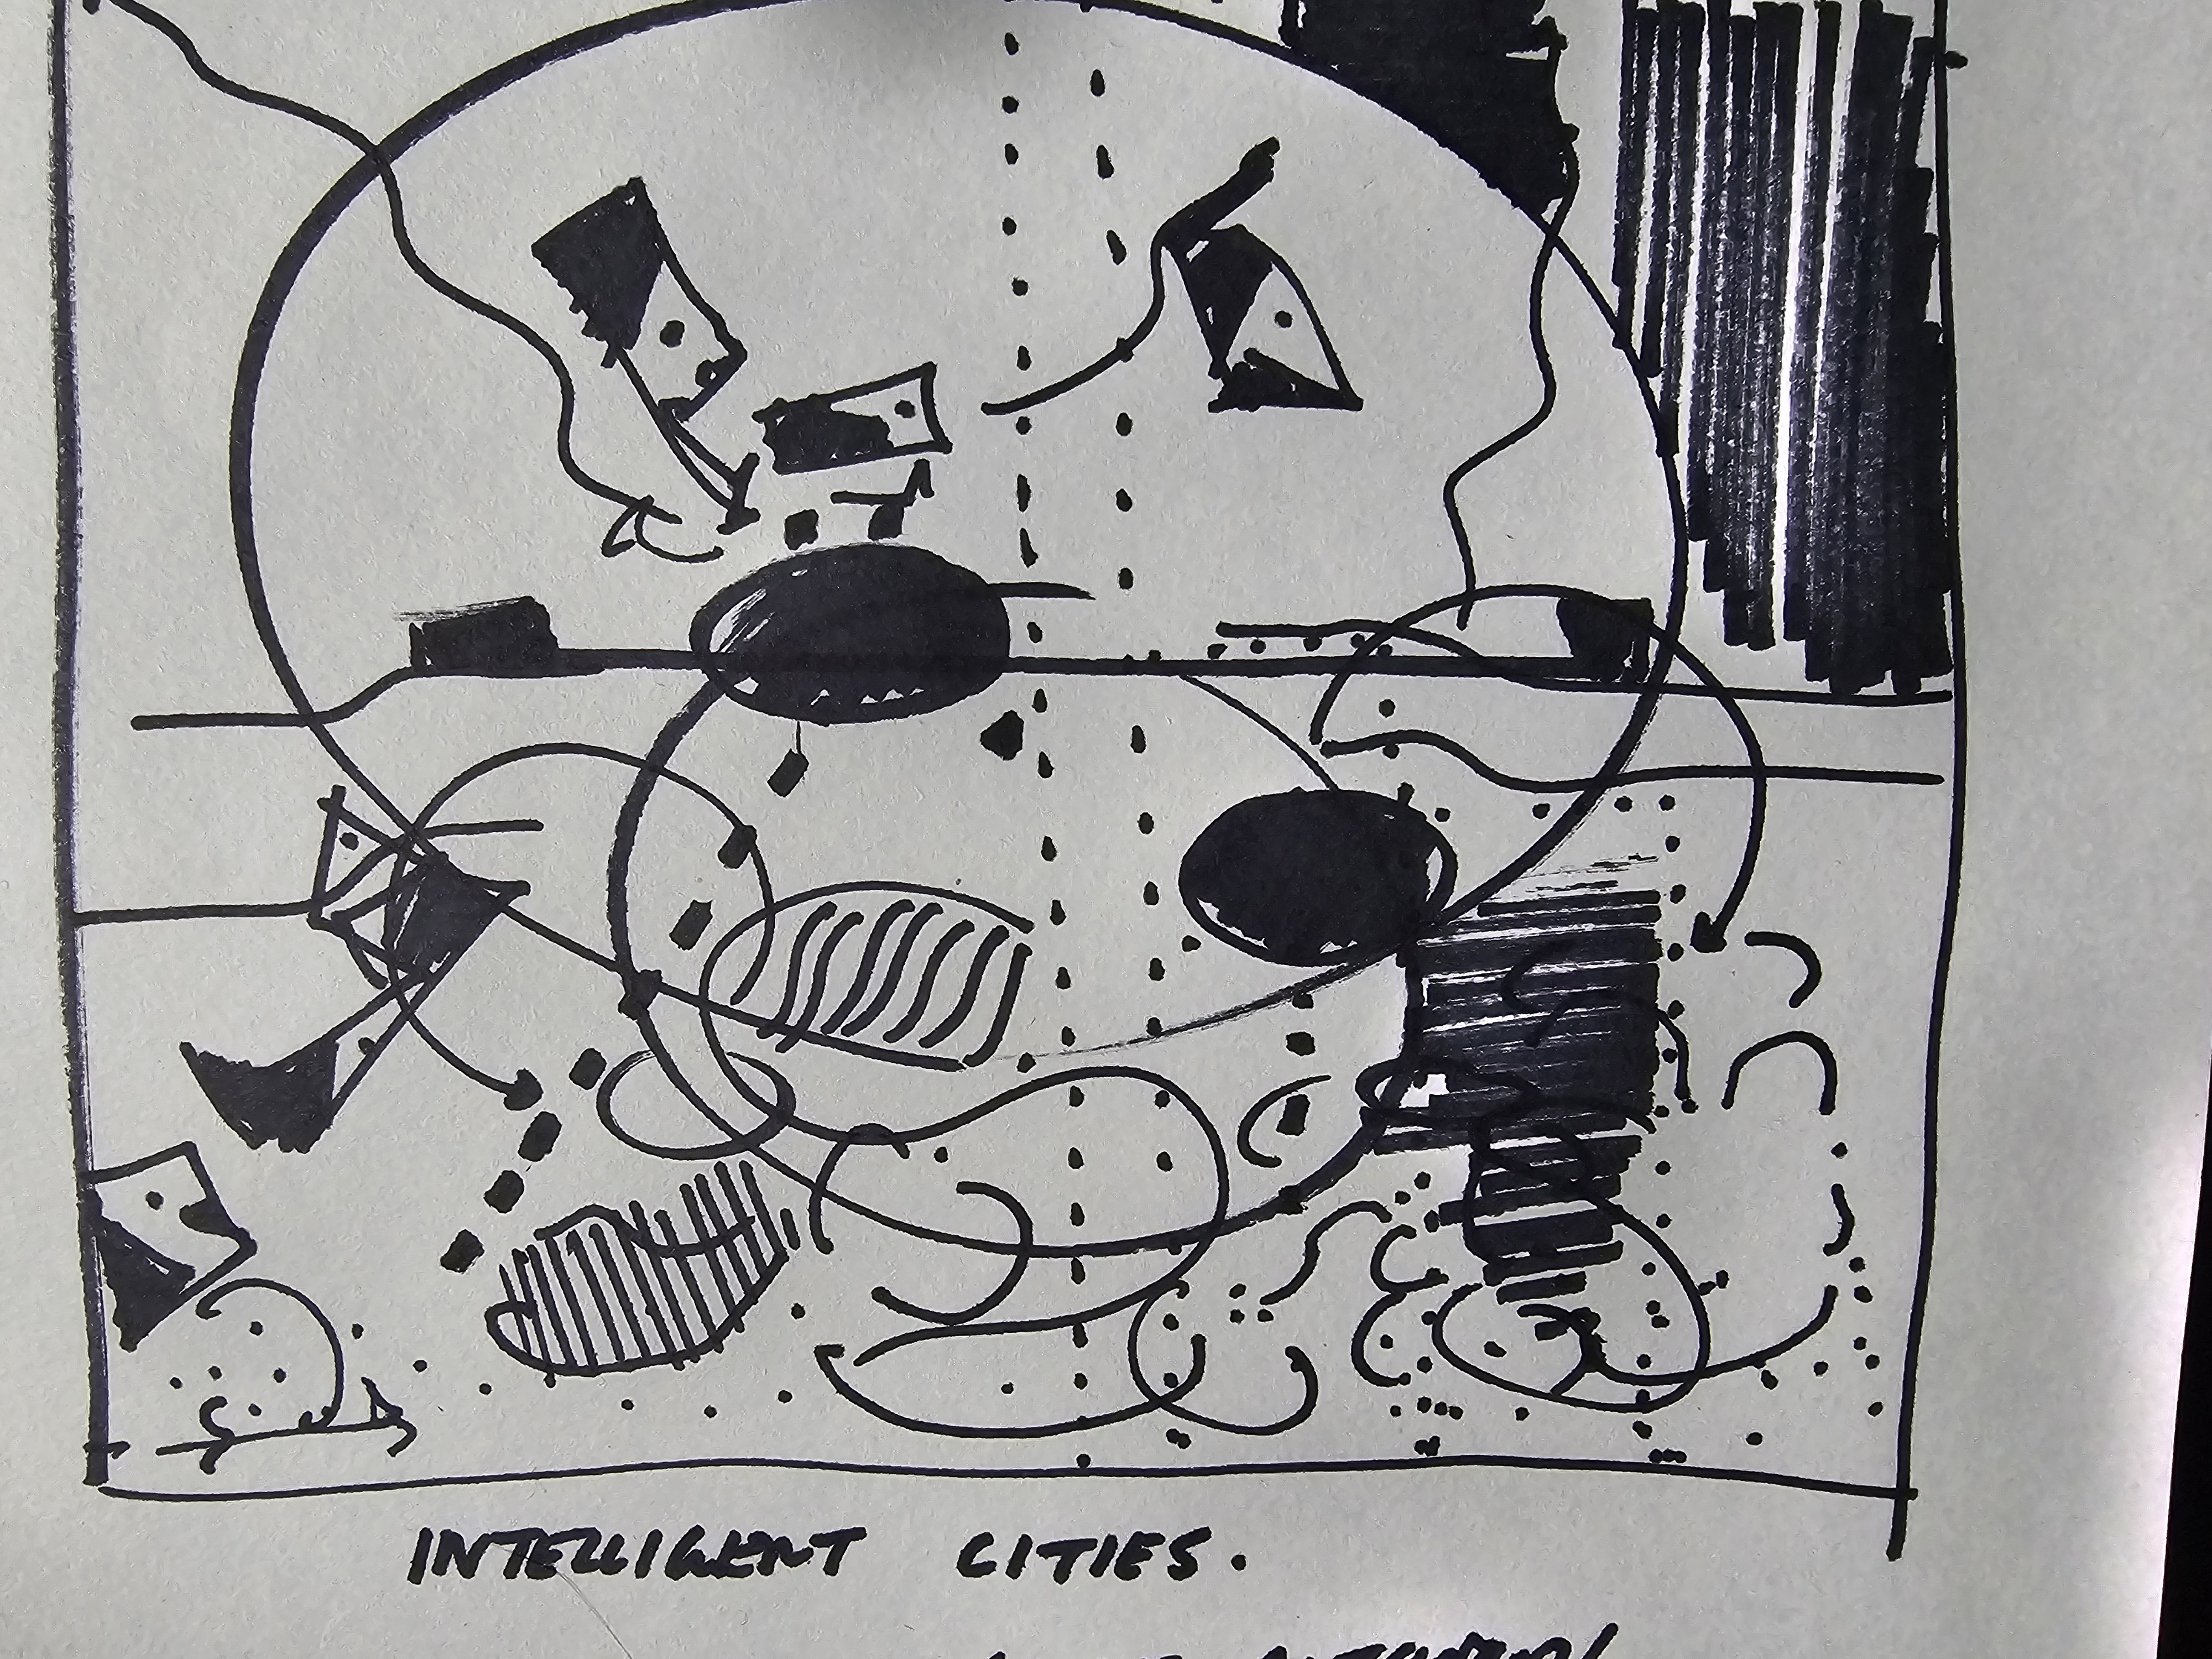 INTELLIGENT CITIES.